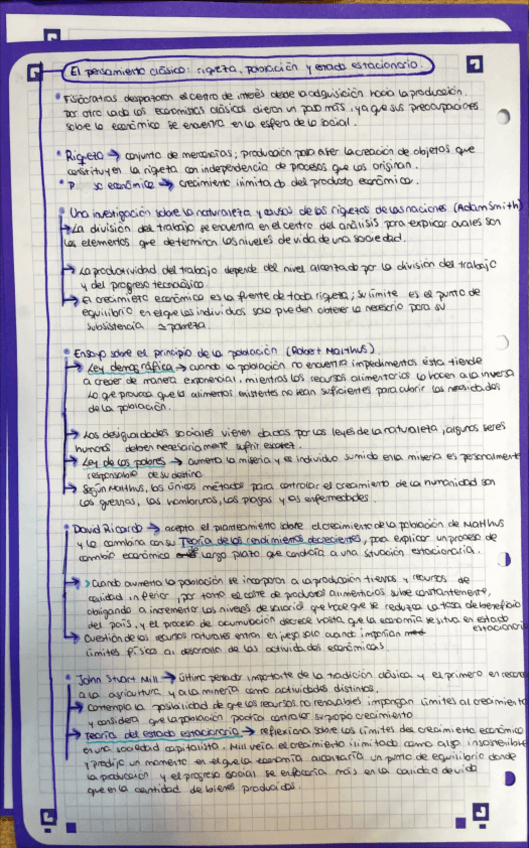 El pensamiento clásico: riqueza, población y estado estacionario.
• Fisiócratas desplazaron el centro de interés desde la adquisición hacia la producción.
por otro lado los economistas clásicos dieron un paso más, ya que sus preocupaciones
sobre lo económico se encuentra en la esfera de lo social.
• Riqueza → conjunto de mercancías; producción para ofer la creación de objetos que
constituyen la riqueza con independencia de procesos que los originan.
• P so económico → crecimiento ilimitado del producto económico.
• Una investigación sobre la naturaleza y causas de las riquezas de las naciones (Adam Smith)
→ La división del trabajo se encuentra en el centro del análisis para explicar cuales son
los elementos que determinan los niveles de vida de una sociedad.
→ La productividad del trabajo depende del nivel alcanzado por la división del trabajo
y del progreso tecnológico.
→ El crecimiento económico es la fuente de toda riqueza; su límite es el punto de
equilibrio en el que los individuos solo pueden obtener lo necesario para su
subsistencia → pobreza.
• Ensayo sobre el principio de la población (Robert Malthus)
→ Ley demográfica → cuando la población no encuentra impedimentos ésta tiende
a crecer de manera exponencial, mientras los recursos alimentarios lo hacen a la inversa
Lo que provoca que los alimentos existentes no sean suficientes para cubrir las necesidades
de la población.
→ Las desigualdades sociales vienen dadas por las leyes de la naturaleza, algunos seres
humanos deben necesariamente sufrir escasez.
→ Ley de los pobres → aumenta la miseria y es individuo sumido en la miseria es personalmente
responsable de su destino.
→ Según Malthus, los únicos métodos para controlar el crecimiento de la humanidad son
las guerras, las hambrunas, las plagas y las enfermedades.
• David Ricardo → acepta el planteamiento sobre el crecimiento de la población de Malthus
y lo combina con su Teoría de los rendimientos decrecientes, para explicar un proceso de
cambio económico largo plazo que conducía a una situación estacionaria.
→ Cuando aumenta la población se incorporan a la producción tierras y recursos de
calidad inferior, por tanto el coste de productos alimenticios sube constantemente,
obligando a incrementar los niveles de salario que hace que se reduzca la tasa de beneficio
del país, y el proceso de acumulación decrece hasta que la economía se sitúa en estado
estacionario
→ Cuestión de los recursos naturales entran en juego solo cuando imponían
límites físicos al desarrollo de las actividades económicas.
• John Stuart Mill → último pensador importante de la tradición clásica y el primero en
a la agricultura y a la minería como actividades distintas.
→ contempla la posibilidad de que los recursos no renovables impongan límites al crecimiento
y considera que la población podría controlar su propio crecimiento
→ Teoría del estado estacionario → reflexiona sobre los límites del crecimiento económico
en una sociedad capitalista. Mill veía el crecimiento ilimitado como algo insostenible
y predijo un momento en el que la economía alcanzaría un punto de equilibrio donde
la producción y el progreso social se enfocaría más en la calidad de vida
que en la cantidad de bienes producidos.